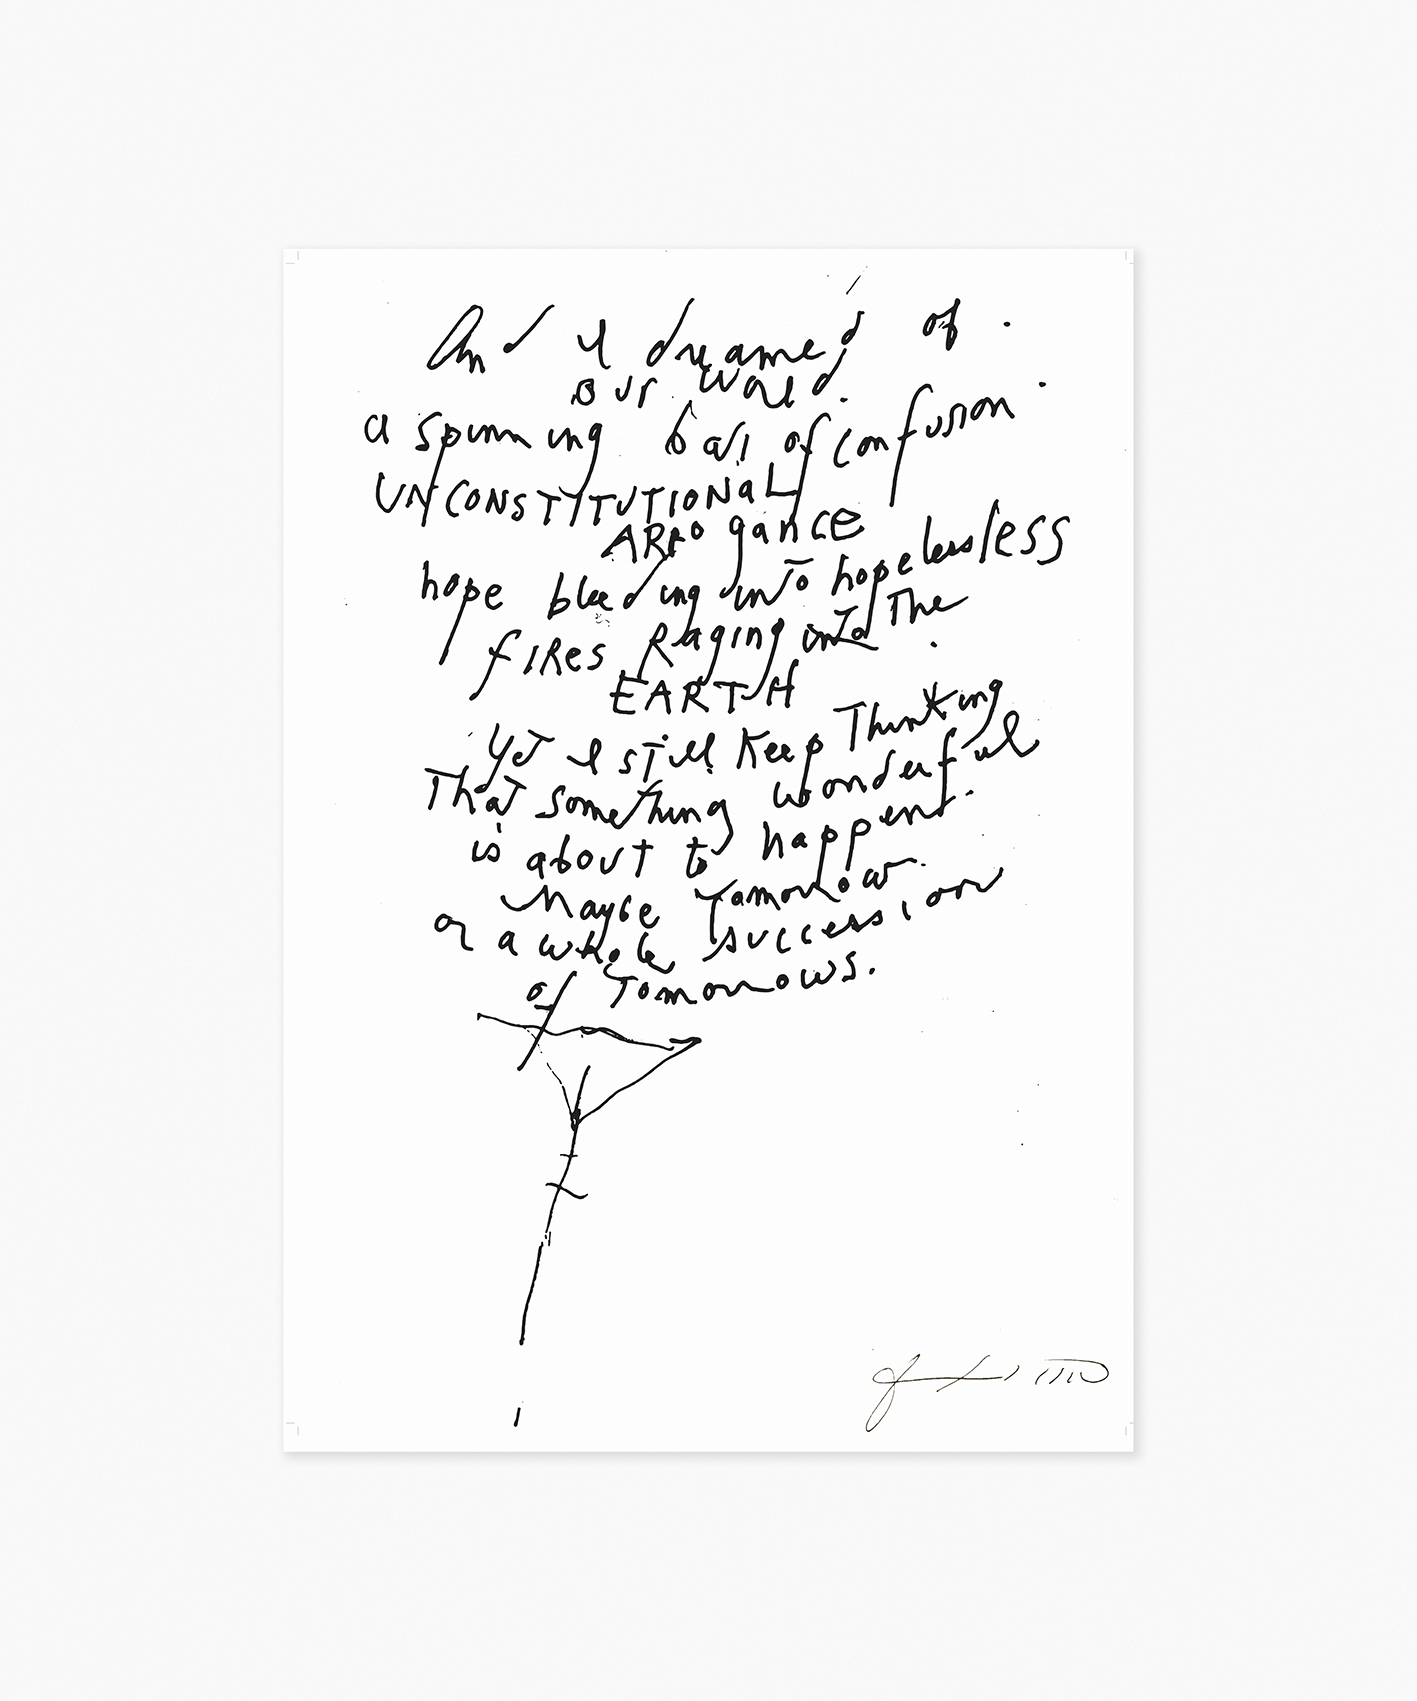 And I dreamed of.
our world.
a spinning ball of confusion.
UNCONSTITUTIONAL
ARROgance
hope bleeding into hopelessless
fires Raging into The
EARTH.
yet I still Keep Thinking
That something wonderful
is about to happen.
Maybe Tomorrow.
or a whole succession
of Tomorrows.